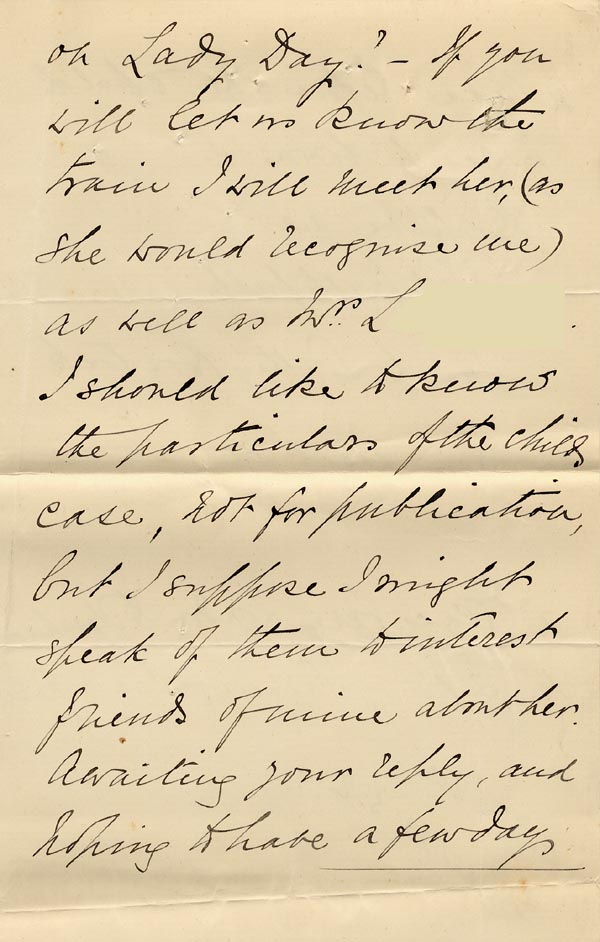 on Lady Day? - If you
will let us know the
train I will meet her, (as
she would recognise me)
as well as Mrs. L .
I should like to know
the particulars of the childs
case, not for publication,
but I suppose I might
speak of them to interest
friends of mine about her.
Awaiting your reply, and
hoping to have a few days